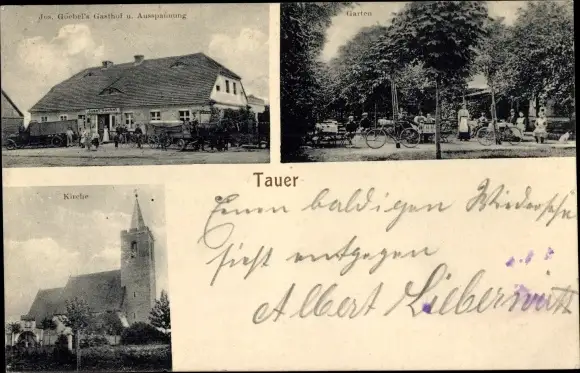 Jos. Goebel's Gasthof u. Ausspannung
Garten
Kirche
Tauer
Einen baldigen Wiedersehn
sieht entgegen
Albert Lieberwirth